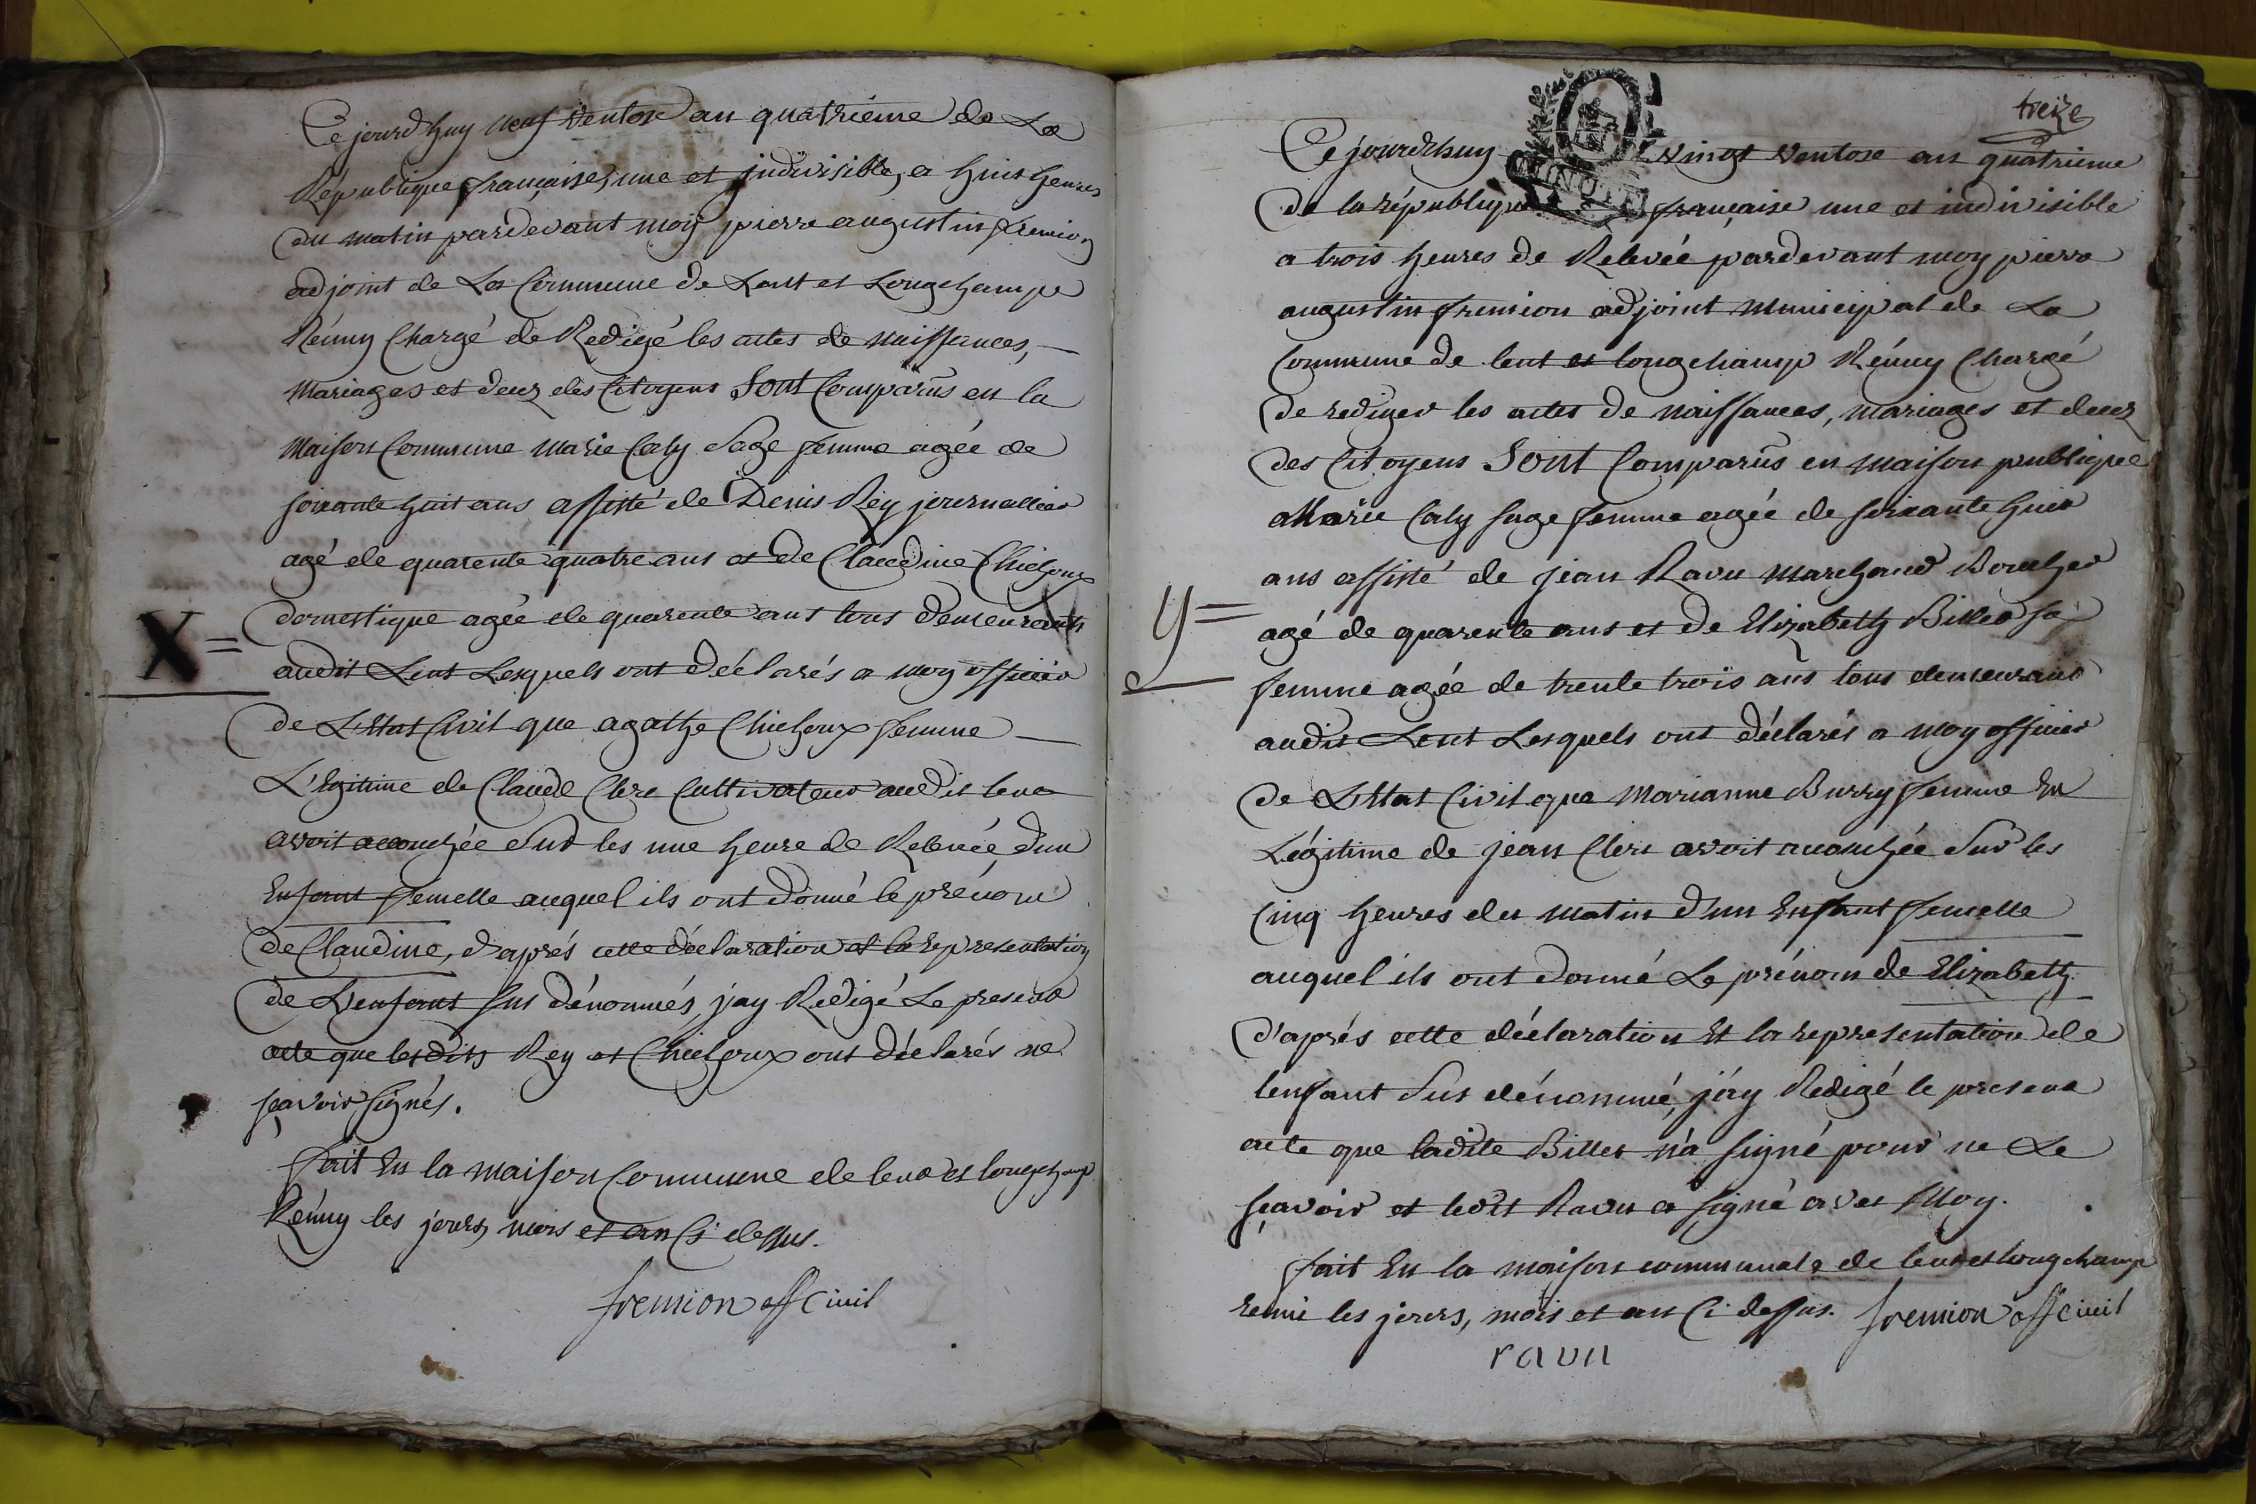 Ce jourd'huy neuf Ventose an quatrieme de La
République française, une et jndivisible, a huit heures
du matin pardevant moy pierre augustin fremion
adjoint de La Commune de Lent et Longchamp
Rémy Chargé de Redigé les actes de naissances,
mariages et decez des Citoyens Sont Comparus en la
maison Commune marie Caly Sage femme agée de
soixante huit ans assisté de Denis Rey journallier
agé de quarente quatre ans et de Claudine Chichoux
domestique agée de quarente ans tous demeurants
X =
audit Lent Lesquels ont déclarés a moy officier
de L'Etat Civil que agathe Chichoux femme
L'Egitime de Claude Clerc Cultivateur audit lent
avoit accouchée Sur les une heure de Relevée d'un
Enfant femelle auquel ils ont donné le prénom
de Claudine, d'aprés cette déclaration et la representation
de L'enfant sus dénommés, j'ay Redigé Le present
acte que lesdits Rey et Chichoux ont déclarés ne
sçavoir signés.
fait En la maison Commune de lent et longchamp
Rémy les jours, mois et an Ci dessus.
fremion off civil
treize
Ce jourd'huy vingt Ventose an quatrieme
de la république française une et indivisible
a trois heures de Relevée pardevant moy pierre
augustin fremion adjoint municipal de La
Commune de lent et longchamp Rémy Chargé
de rediger les actes de naissances, mariages et decez
des Citoyens Sont Comparus en maison publique
Marie Caly sage femme agée de soixante huit
ans assisté de jean Ravu marchand Boucher
y =
agé de quarente ans et de Elizabeth Billet sa
femme agée de trente trois ans tous demeurant
audit Lent Lesquels ont déclarés a moy officier
de L'Etat Civil que Marianne Burry femme En
Légitime de jean Clerc avoit accouchée Sur les
Cinq heures du matin d'un Enfant femelle
auquel ils ont donné Le prénom de Elizabeth
d'aprés cette déclaration Et la representation de
l'enfant Sus dénommé, j'ay Redigé le present
acte que ladite Billet n'a signé pour ne Le
sçavoir et ledit Ravu a signé avec Moy.
fait En la maison communale de lent et longchamp
remi les jours, mois et an Ci dessus. fremion off civil
ravu